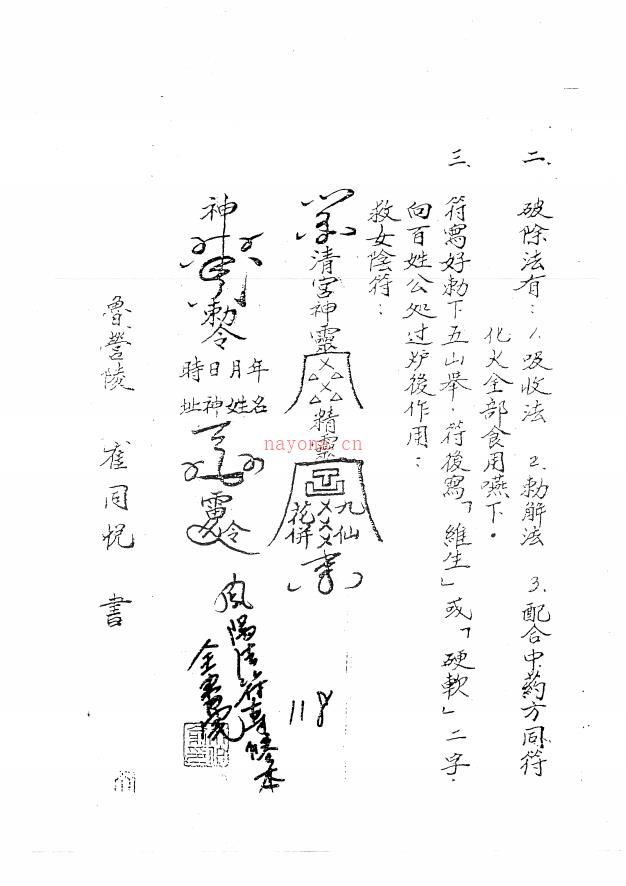 二、破除法有：1.吸收法 2.勅解法 3.配合中葯方同符
化火全部食用嚥下。
三、符寫好勅下五山舉．符後寫「維生」或「硬軟」二字．
向百姓公处过炉後作用：
救女陰符：
清宮神靈
精靈
九仙
花併
神
勅令
年月日時
名姓神址
雷令
鳳陽法符専滕本
118
魯營陵 崔同悅 書
nayona.cn